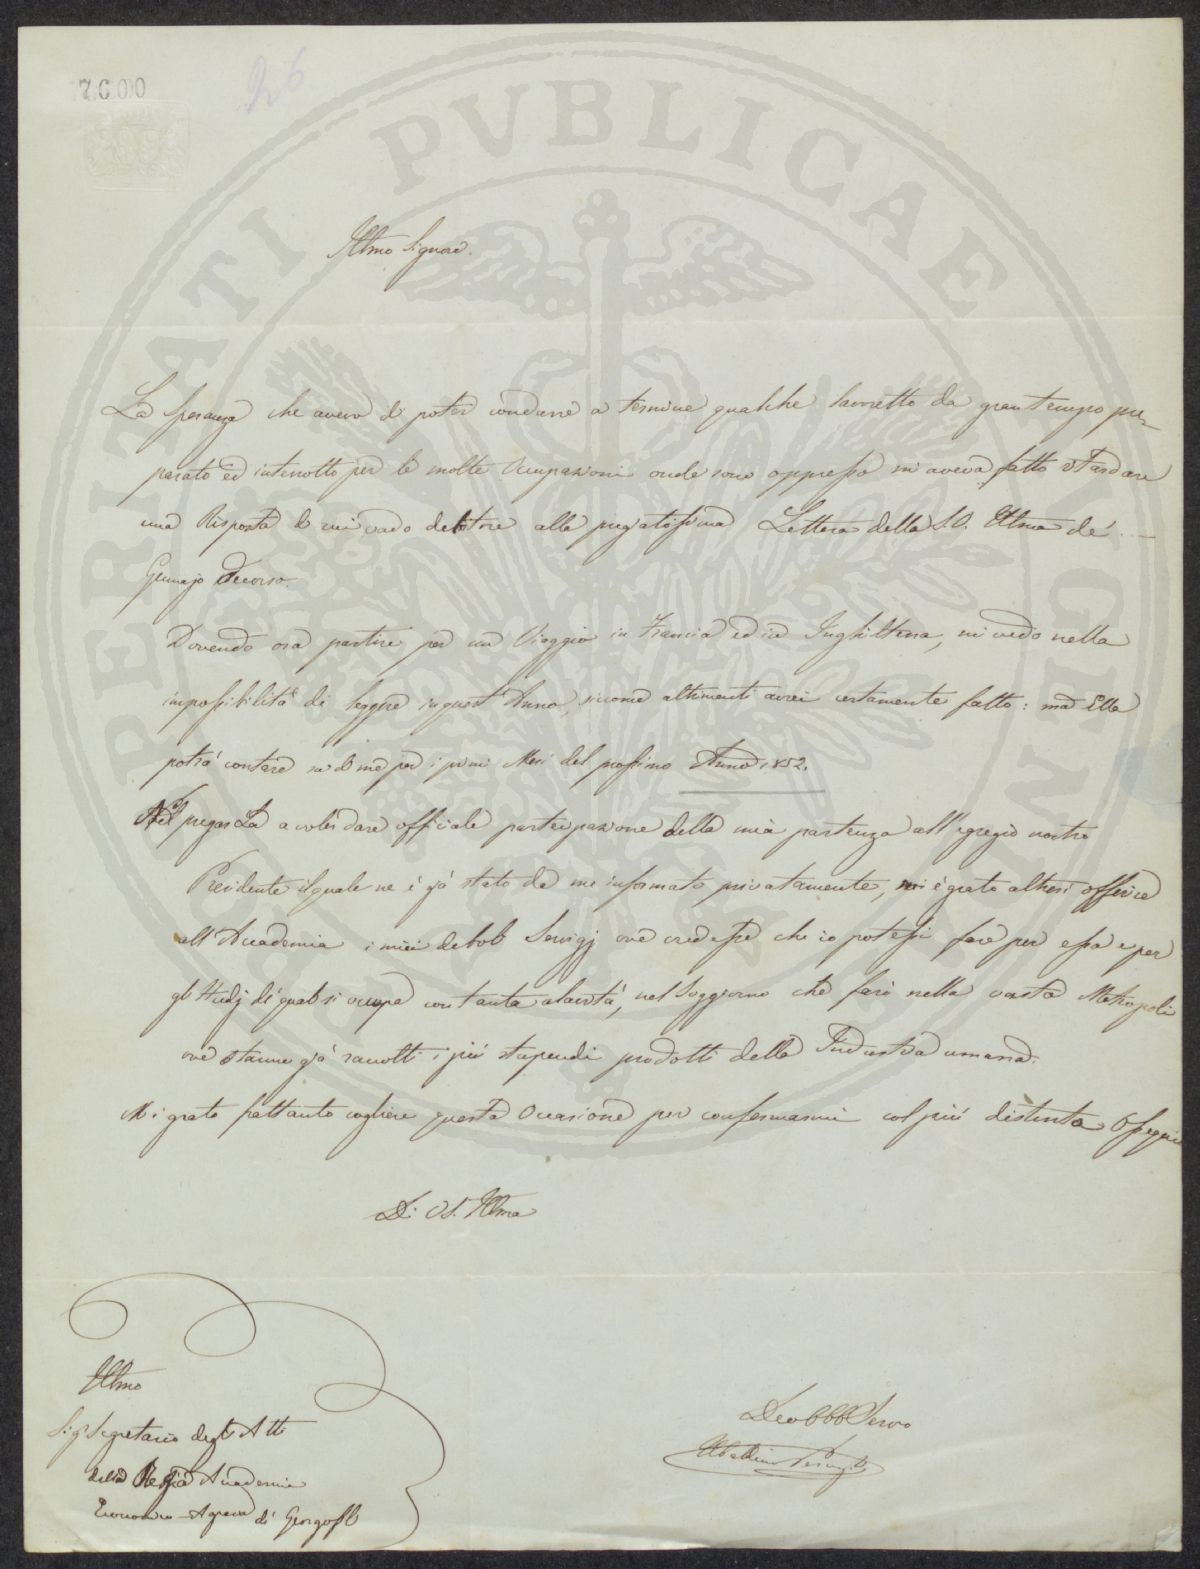 7600
26
PROSPERITATI PVBLICAE AVGENDAE
Illmo Signore.
La speranza che avevo di poter condurre a termine qualche lavoretto da gran tempo pre-
parato ed interrotto per le molte Occupazioni onde sono oppresso mi aveva fatto ritardare
una Risposta di cui vado debitore alla pregiatissima Lettera della S. V. Illma de' ...
Gennajo decorso.
Dovendo ora partire per un Viaggio in Francia ed in Inghilterra, mi vedo nella
impossibilità di leggere in quest'Anno, siccome altrimenti avrei certamente fatto: ma Ella
potrà contare su di me per i primi Mesi del prossimo Anno 1852.
Nel pregarLa a voler dare officiale partecipazione della mia partenza all'egregio nostro
Presidente il quale ne è già stato da me informato privatamente, mi è grato altresì offerire
all'Accademia i miei deboli Servigj ove credesse che io potessi fare per essa e per
gli Studj de' quali si occupa con tanta alacrità, nel Soggiorno che farò nella vasta Metropoli
ove stanno già raccolti i più stupendi prodotti della Industria umana.
Mi è grato frattanto cogliere questa Occasione per confermarmi col più distinto Ossequio
Di V. S. Illma
Illmo
Sig. Segretario degli Atti
della Reale Accademia
Economico-Agraria de' Georgofili
Dev Obb Servo
Ubaldino Peruzzi